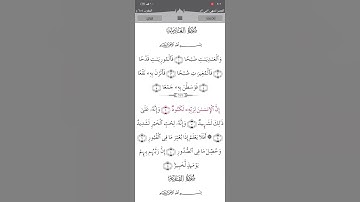 سُورَةُ العَادِيَاتِ
بِسْمِ اللَّهِ الرَّحْمَٰنِ الرَّحِيمِ
وَالْعَادِيَاتِ ضَبْحًا ۝١ فَالْمُورِيَاتِ قَدْحًا
۝٢ فَالْمُغِيرَاتِ صُبْحًا ۝٣ فَأَثَرْنَ بِهِ نَقْعًا
۝٤ فَوَسَطْنَ بِهِ جَمْعًا ۝٥
إِنَّ الْإِنسَانَ لِرَبِّهِ لَكَنُودٌ ۝٦ وَإِنَّهُ عَلَىٰ
ذَٰلِكَ لَشَهِيدٌ ۝٧ وَإِنَّهُ لِحُبِّ الْخَيْرِ لَشَدِيدٌ
۝٨ ۞ أَفَلَا يَعْلَمُ إِذَا بُعْثِرَ مَا فِي الْقُبُورِ ۝٩
وَحُصِّلَ مَا فِي الصُّدُورِ ۝١٠ إِنَّ رَبَّهُم بِهِمْ
يَوْمَئِذٍ لَّخَبِيرٌ ۝١١
سُورَةُ القَارِعَةِ
بِسْمِ اللَّهِ الرَّحْمَٰنِ الرَّحِيمِ